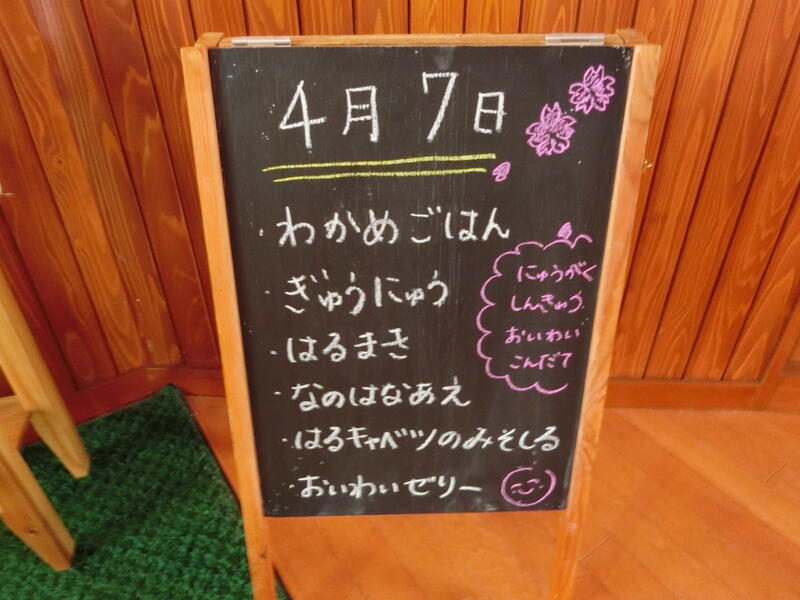 4月7日
・わかめごはん
・ぎゅうにゅう
・はるまき
・なのはなあえ
・はるキャベツのみそしる
・おいわいゼリー
にゅうがく
しんきゅう
おいわい
こんだて